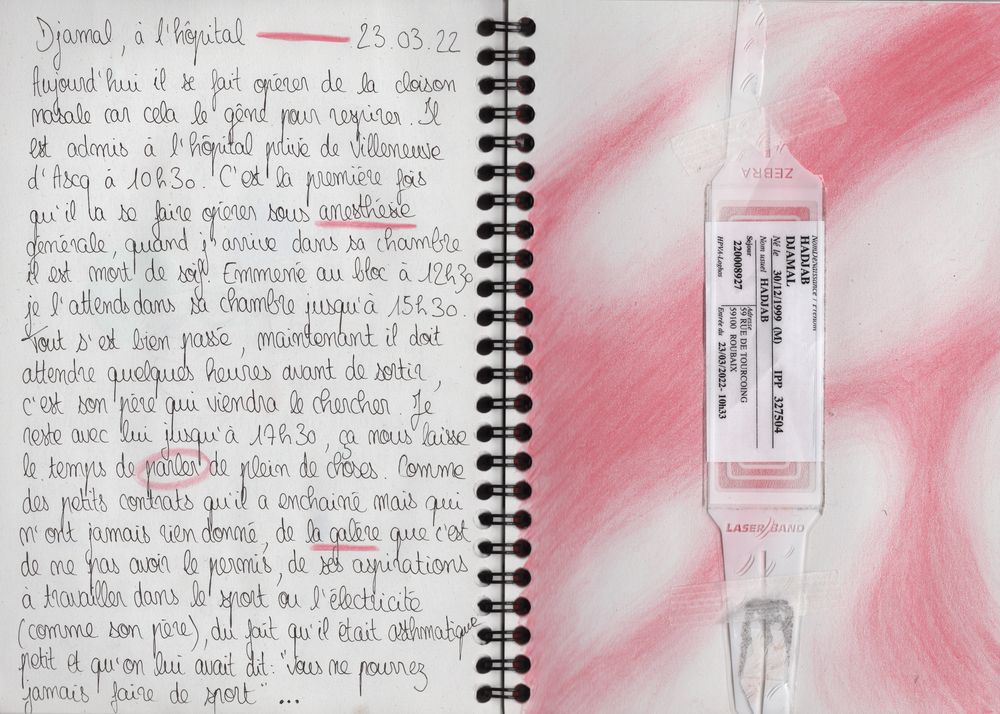 Djamal, à l'hôpital — 23.03.22
Aujourd'hui il se fait opérer de la cloison
nasale car cela le gêne pour respirer. Il
est admis à l'hôpital privé de Villeneuve
d'Ascq à 10h30. C'est la première fois
qu'il va se faire opérer sous anesthésie
générale, quand j'arrive dans sa chambre
il est mort de soif. Emmené au bloc à 12h30
je l'attends dans sa chambre jusqu'à 15h30.
Tout s'est bien passé, maintenant il doit
attendre quelques heures avant de sortir,
c'est son père qui viendra le chercher. Je
reste avec lui jusqu'à 17h30, ça nous laisse
le temps de parler de plein de choses. Comme
des petits contrats qu'il a enchaîné mais qui
n'ont jamais rien donné, de la galère que c'est
de ne pas avoir le permis, de ses aspirations
à travailler dans le sport ou l'électricité
(comme son père), du fait qu'il était asthmatique
petit et qu'on lui avait dit: "Vous ne pourrez
jamais faire de sport"...
ZEBRA
Nom Naissance / Prénom
HADJAB
DJAMAL
Né le 30/12/1999 (M) IPP 327504
Nom usuel HADJAB
Séjour
220008927
Adresse
59 RUE DE TOURCOING
59100 ROUBAIX
HPVA-Logbas
Entrée du 23/03/2022- 10h33
LASERBAND